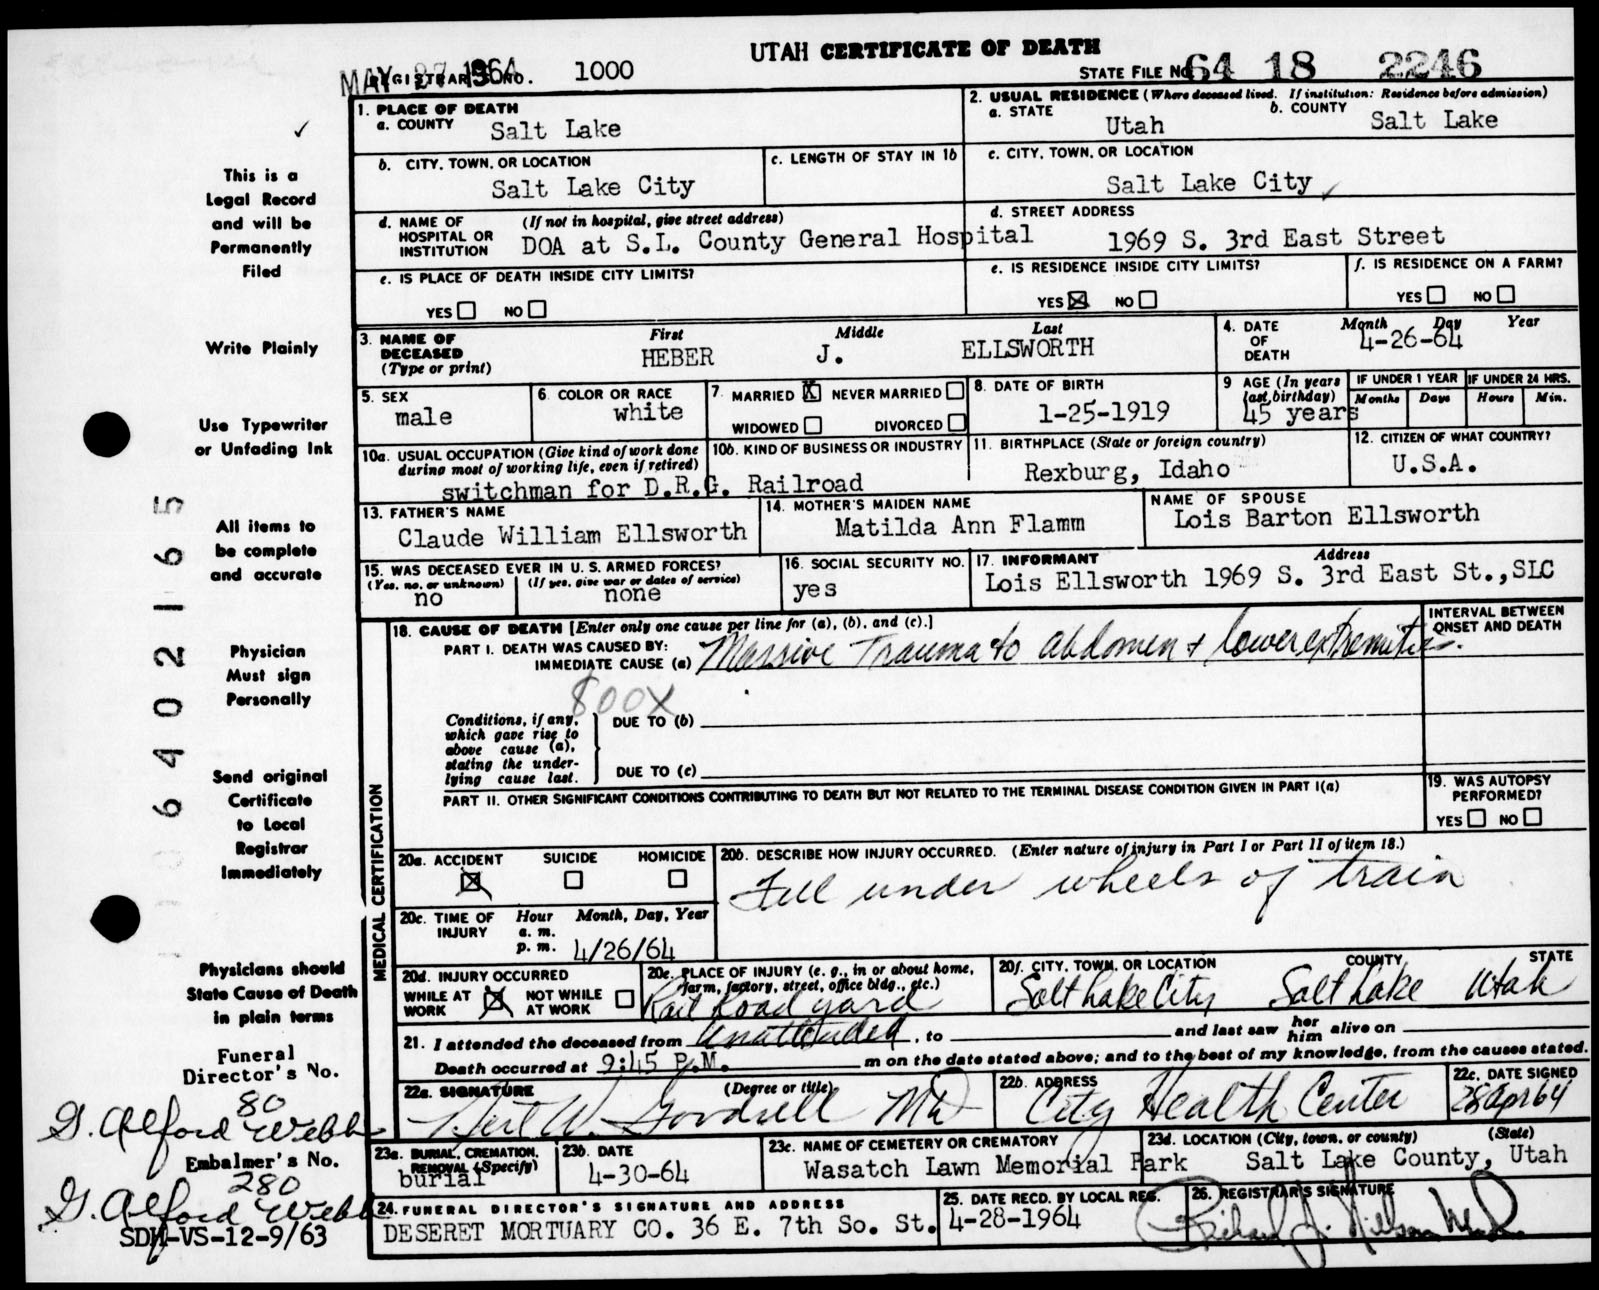 UTAH CERTIFICATE OF DEATH
MAY 27 1964
REGISTRAR'S NO. 1000
STATE FILE NO. 64 18 2246
1. PLACE OF DEATH
a. COUNTY Salt Lake
2. USUAL RESIDENCE (Where deceased lived. If institution: Residence before admission)
a. STATE Utah b. COUNTY Salt Lake
b. CITY, TOWN, OR LOCATION Salt Lake City
c. LENGTH OF STAY IN 1b
c. CITY, TOWN, OR LOCATION Salt Lake City
d. NAME OF HOSPITAL OR INSTITUTION (If not in hospital, give street address)
DOA at S.L. County General Hospital
d. STREET ADDRESS
1969 S. 3rd East Street
e. IS PLACE OF DEATH INSIDE CITY LIMITS?
YES NO
e. IS RESIDENCE INSIDE CITY LIMITS?
YES NO
f. IS RESIDENCE ON A FARM?
YES NO
3. NAME OF DECEASED (Type or print)
First Middle Last
HEBER J. ELLSWORTH
4. DATE OF DEATH Month Day Year
4-26-64
5. SEX
male
6. COLOR OR RACE
white
7. MARRIED X NEVER MARRIED
WIDOWED DIVORCED
8. DATE OF BIRTH
1-25-1919
9 AGE (In years last birthday)
45 years
IF UNDER 1 YEAR
Months Days
IF UNDER 24 HRS.
Hours Min.
10a. USUAL OCCUPATION (Give kind of work done during most of working life, even if retired)
10b. KIND OF BUSINESS OR INDUSTRY
switchman for D.R.G. Railroad
11. BIRTHPLACE (State or foreign country)
Rexburg, Idaho
12. CITIZEN OF WHAT COUNTRY?
U.S.A.
13. FATHER'S NAME
Claude William Ellsworth
14. MOTHER'S MAIDEN NAME
Matilda Ann Flamm
NAME OF SPOUSE
Lois Barton Ellsworth
15. WAS DECEASED EVER IN U.S. ARMED FORCES?
(Yes, no, or unknown) (If yes, give war or dates of service)
no none
16. SOCIAL SECURITY NO.
yes
17. INFORMANT Address
Lois Ellsworth 1969 S. 3rd East St.,SLC
MEDICAL CERTIFICATION
18. CAUSE OF DEATH [Enter only one cause per line for (a), (b), and (c).]
INTERVAL BETWEEN ONSET AND DEATH
PART I. DEATH WAS CAUSED BY:
IMMEDIATE CAUSE (a) Massive Trauma to abdomen + lower extremities.
800X
Conditions, if any, which gave rise to above cause (a), stating the underlying cause last.
DUE TO (b)
DUE TO (c)
PART II. OTHER SIGNIFICANT CONDITIONS CONTRIBUTING TO DEATH BUT NOT RELATED TO THE TERMINAL DISEASE CONDITION GIVEN IN PART I(a)
19. WAS AUTOPSY PERFORMED?
YES NO
20a. ACCIDENT SUICIDE HOMICIDE
20b. DESCRIBE HOW INJURY OCCURRED. (Enter nature of injury in Part I or Part II of item 18.)
Fell under wheels of train
20c. TIME OF INJURY Hour Month, Day, Year
a. m.
p. m. 4/26/64
20d. INJURY OCCURRED
WHILE AT WORK NOT WHILE AT WORK
20e. PLACE OF INJURY (e. g., in or about home, farm, factory, street, office bldg., etc.)
Rail Road yard
20f. CITY, TOWN, OR LOCATION COUNTY STATE
Salt Lake City Salt Lake Utah
21. I attended the deceased from Unattended, to and last saw her him alive on
Death occurred at 9:45 P.M. m on the date stated above; and to the best of my knowledge, from the causes stated.
22a. SIGNATURE (Degree or title)
MD
22b. ADDRESS
City Health Center
22c. DATE SIGNED
28 Apr 64
23a. BURIAL, CREMATION, REMOVAL (Specify)
burial
23b. DATE
4-30-64
23c. NAME OF CEMETERY OR CREMATORY
Wasatch Lawn Memorial Park
23d. LOCATION (City, town, or county) (State)
Salt Lake County, Utah
24. FUNERAL DIRECTOR'S SIGNATURE AND ADDRESS
DESERET MORTUARY CO. 36 E. 7th So. St.
25. DATE RECD. BY LOCAL REG.
4-28-1964
26. REGISTRAR'S SIGNATURE
This is a
Legal Record
and will be
Permanently
Filed
Write Plainly
Use Typewriter
or Unfading Ink
All items to
be complete
and accurate
Physician
Must sign
Personally
Send original
Certificate
to Local
Registrar
Immediately
Physicians should
State Cause of Death
in plain terms
Funeral
Director's No.
80
G. Alford Webb
Embalmer's No.
280
G. Alford Webb
SDH-VS-12-9/63
6402165